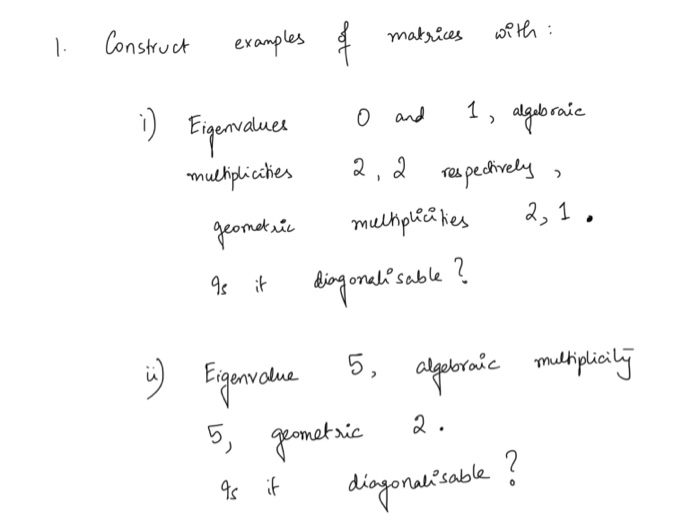 1. Construct examples of matrices with :
i) Eigenvalues 0 and 1, algebraic
multiplicities 2, 2 respectively,
geometric multiplicities 2, 1.
Is it diagonalisable ?
ii) Eigenvalue 5, algebraic multiplicity
5, geometric 2.
Is it diagonalisable ?